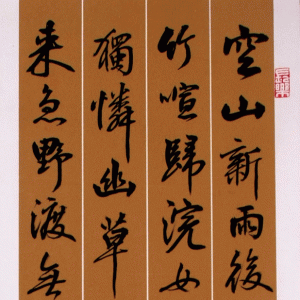 空山新雨後
竹喧歸浣女
獨憐幽草
來急野渡無